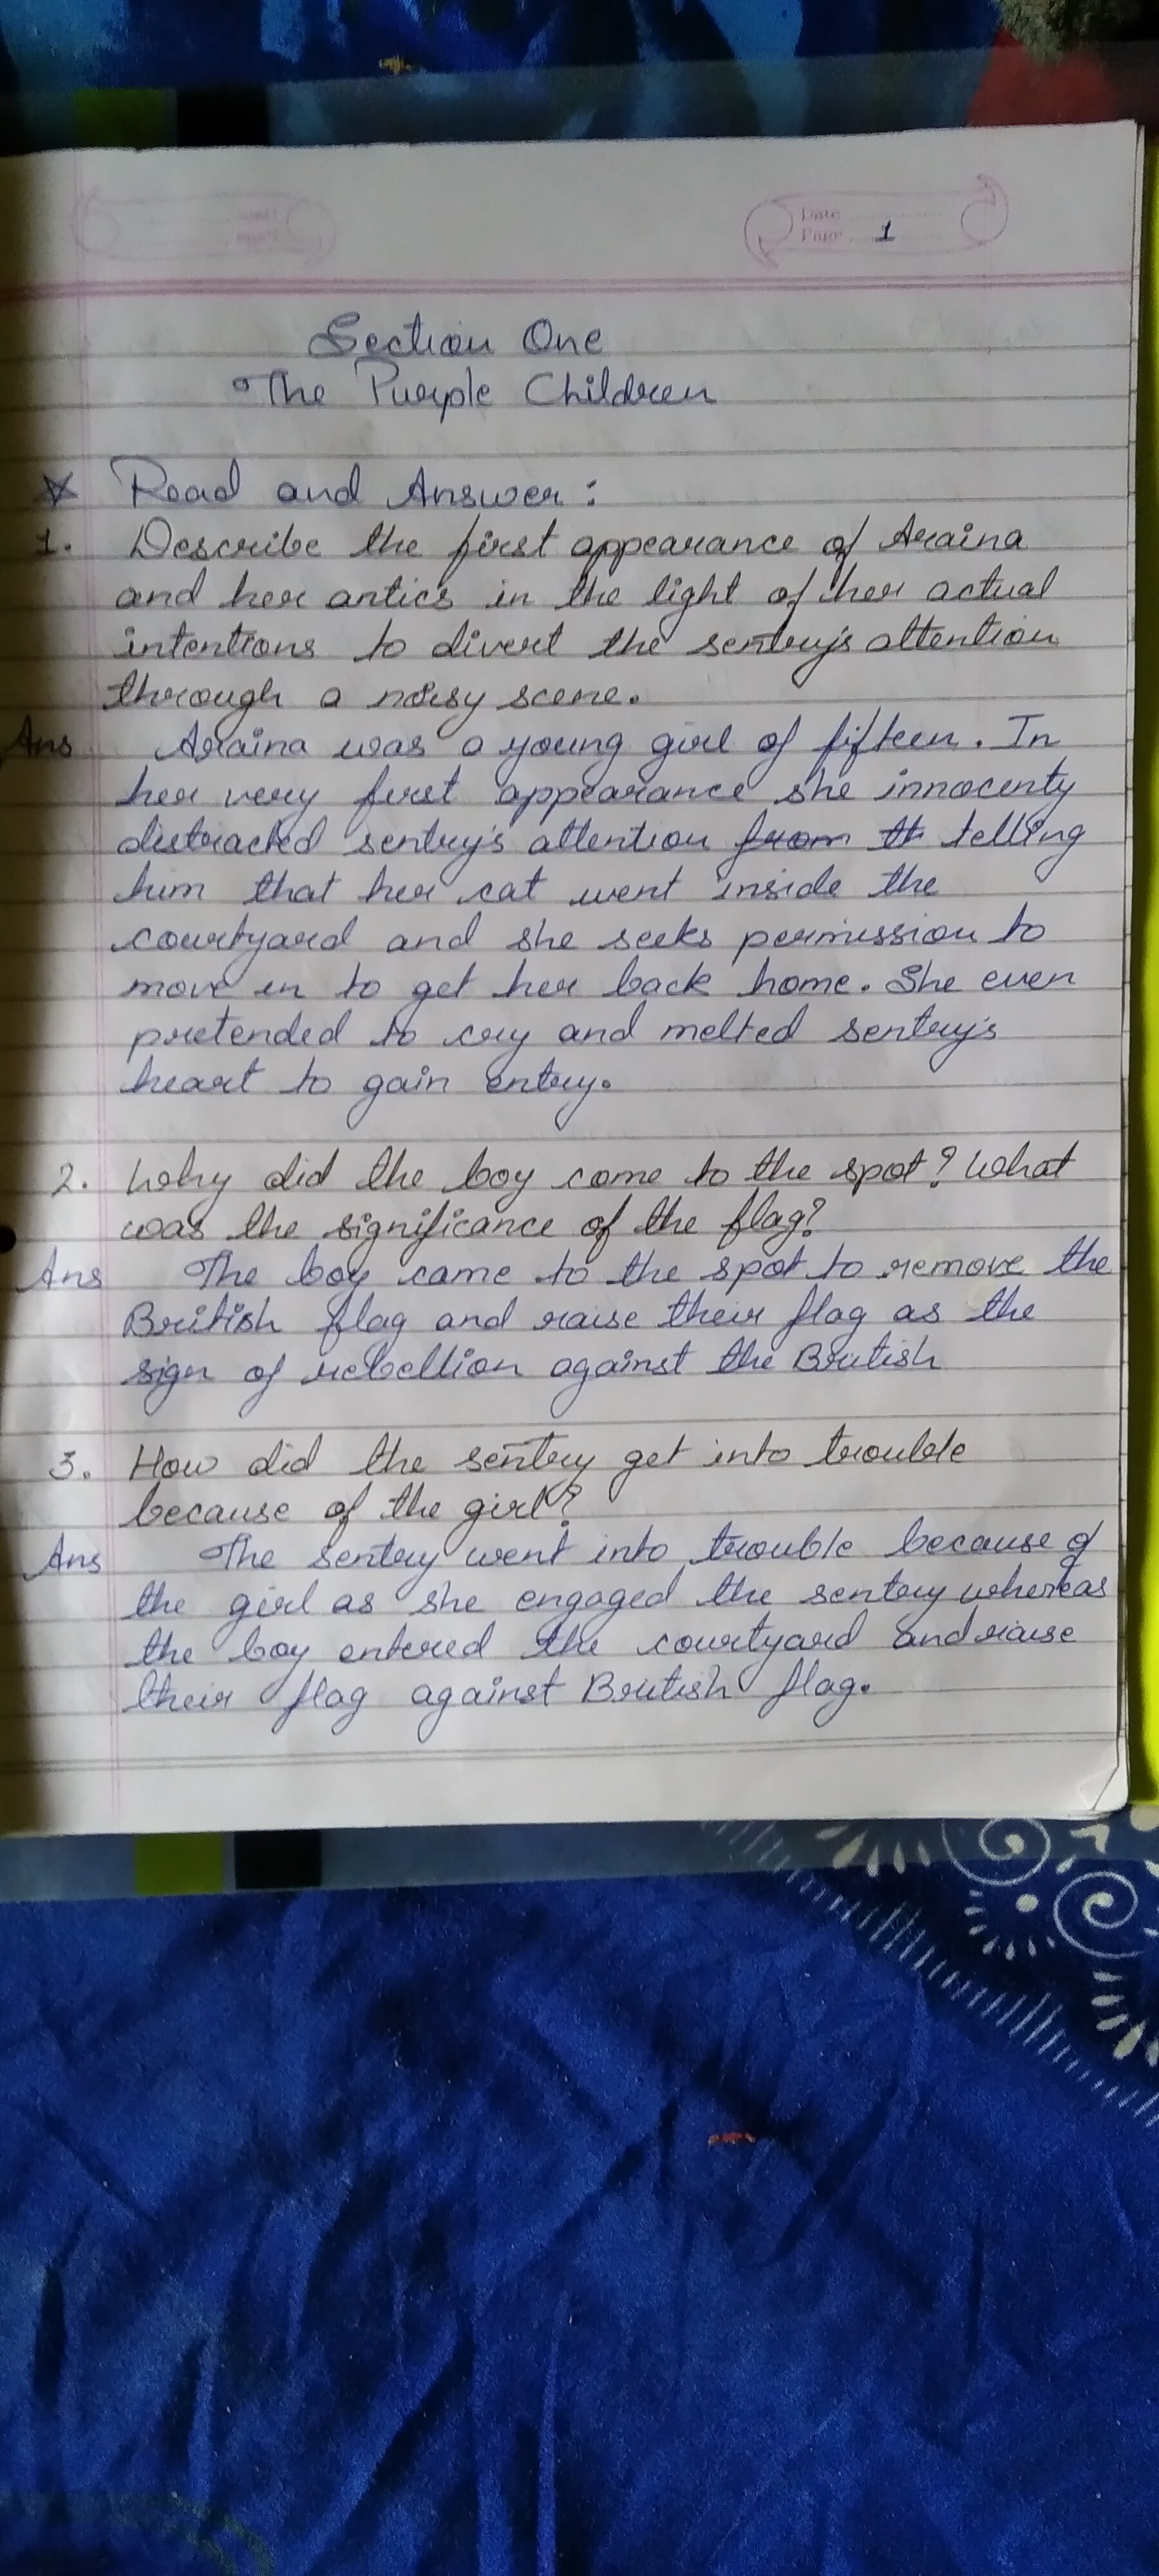 Date
Page 1
Section One
The Purple Children
Read and Answer :
1. Describe the first appearance of Araina
and her antics in the light of her actual
intentions to divert the sentry's attention
through a noisy scene.
Ans Araina was a young girl of fifteen. In
her very first appearance she innocenty
distracted sentry's attention from th telling
him that her cat went inside the
courtyard and she seeks permission to
move in to get her back home. She even
pretended to cry and melted sentry's
heart to gain entry.
2. Why did the boy come to the spot? What
was the significance of the flag?
Ans The boy came to the spot to remove the
British flag and raise their flag as the
sign of rebellion against the British
3. How did the sentry get into trouble
because of the girl?
Ans The sentry went into trouble because of
the girl as she engaged the sentry whereas
the boy entered the courtyard and raise
their flag against British flag.